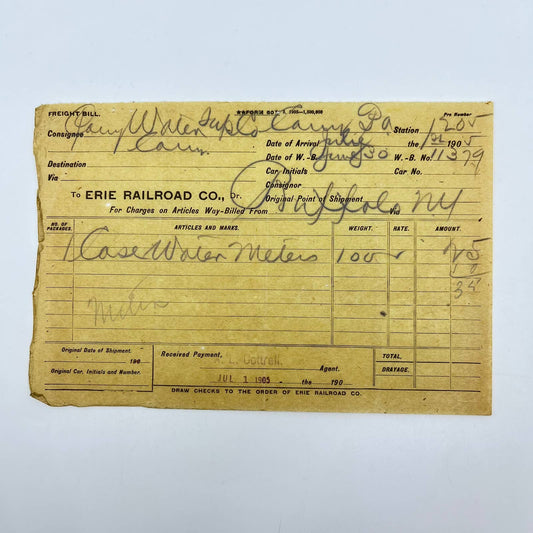 FREIGHT BILL.
Pro Number
Consignee Corry Water Sup Co Corry Pa Station 1205
Corry
Date of Arrival July the 1st 1905
Destination
Date of W.-B. June 30 W.-B. No. 11379
Via
Car Initials Car No.
Consignor
To ERIE RAILROAD CO., Dr. Original Point of Shipment
For Charges on Articles Way-Billed From Buffalo via NY
NO. OF PACKAGES. ARTICLES AND MARKS. WEIGHT. RATE. AMOUNT.
1 Case Water Meters 100 25
10
35
Meters
Original Date of Shipment. 190
Received Payment,
Cottrell
Agent.
TOTAL.
DRAYAGE.
Original Car, Initials and Number.
JUL 1 1905 the 190
DRAW CHECKS TO THE ORDER OF ERIE RAILROAD CO.